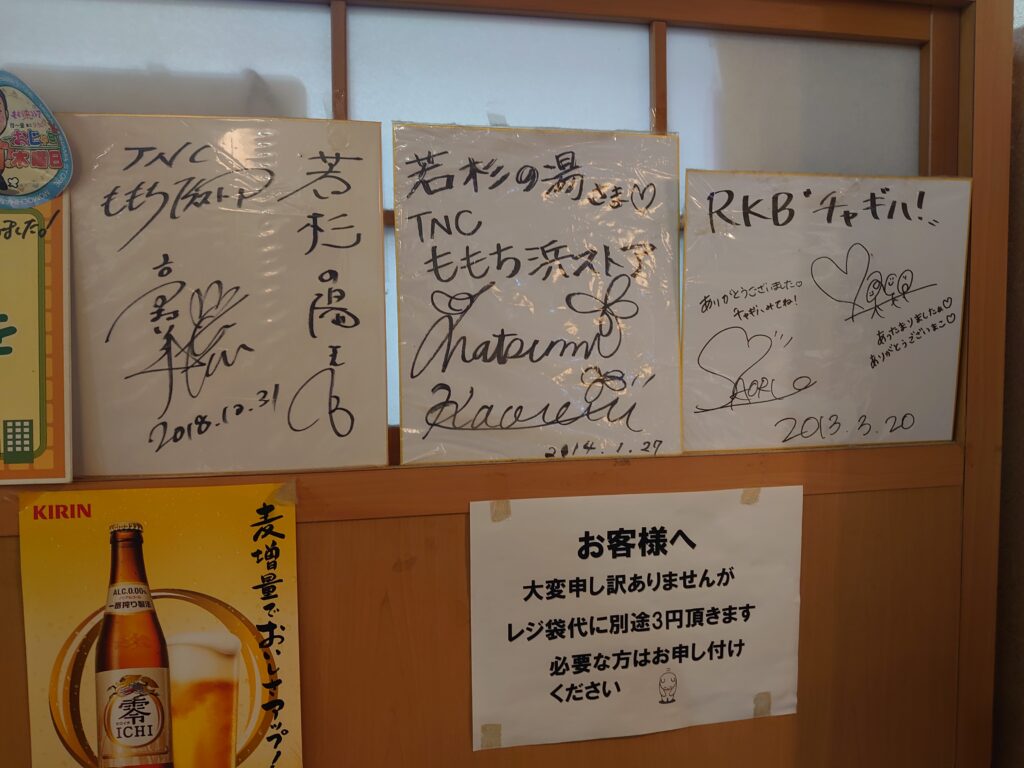 おじゃま
木曜日
TNC
ももち浜ストア
2018.12.31
若杉
の湯
さま
若杉の湯さま♡
TNC
ももち浜ストア
Natsumi
Kaoru
2014.1.27
RKB "チャギハ!"
ありがとうございました♡
チャギハみてね!
SAORI
あったまりましたぁ♡
ありがとうございまこ♡
2013.3.20
KIRIN
麦増量でおいしさアップ!
ALC.0.00%
ノンアルコール
一番搾り製法
零
ICHI
お客様へ
大変申し訳ありませんが
レジ袋代に別途3円頂きます
必要な方はお申し付け
ください